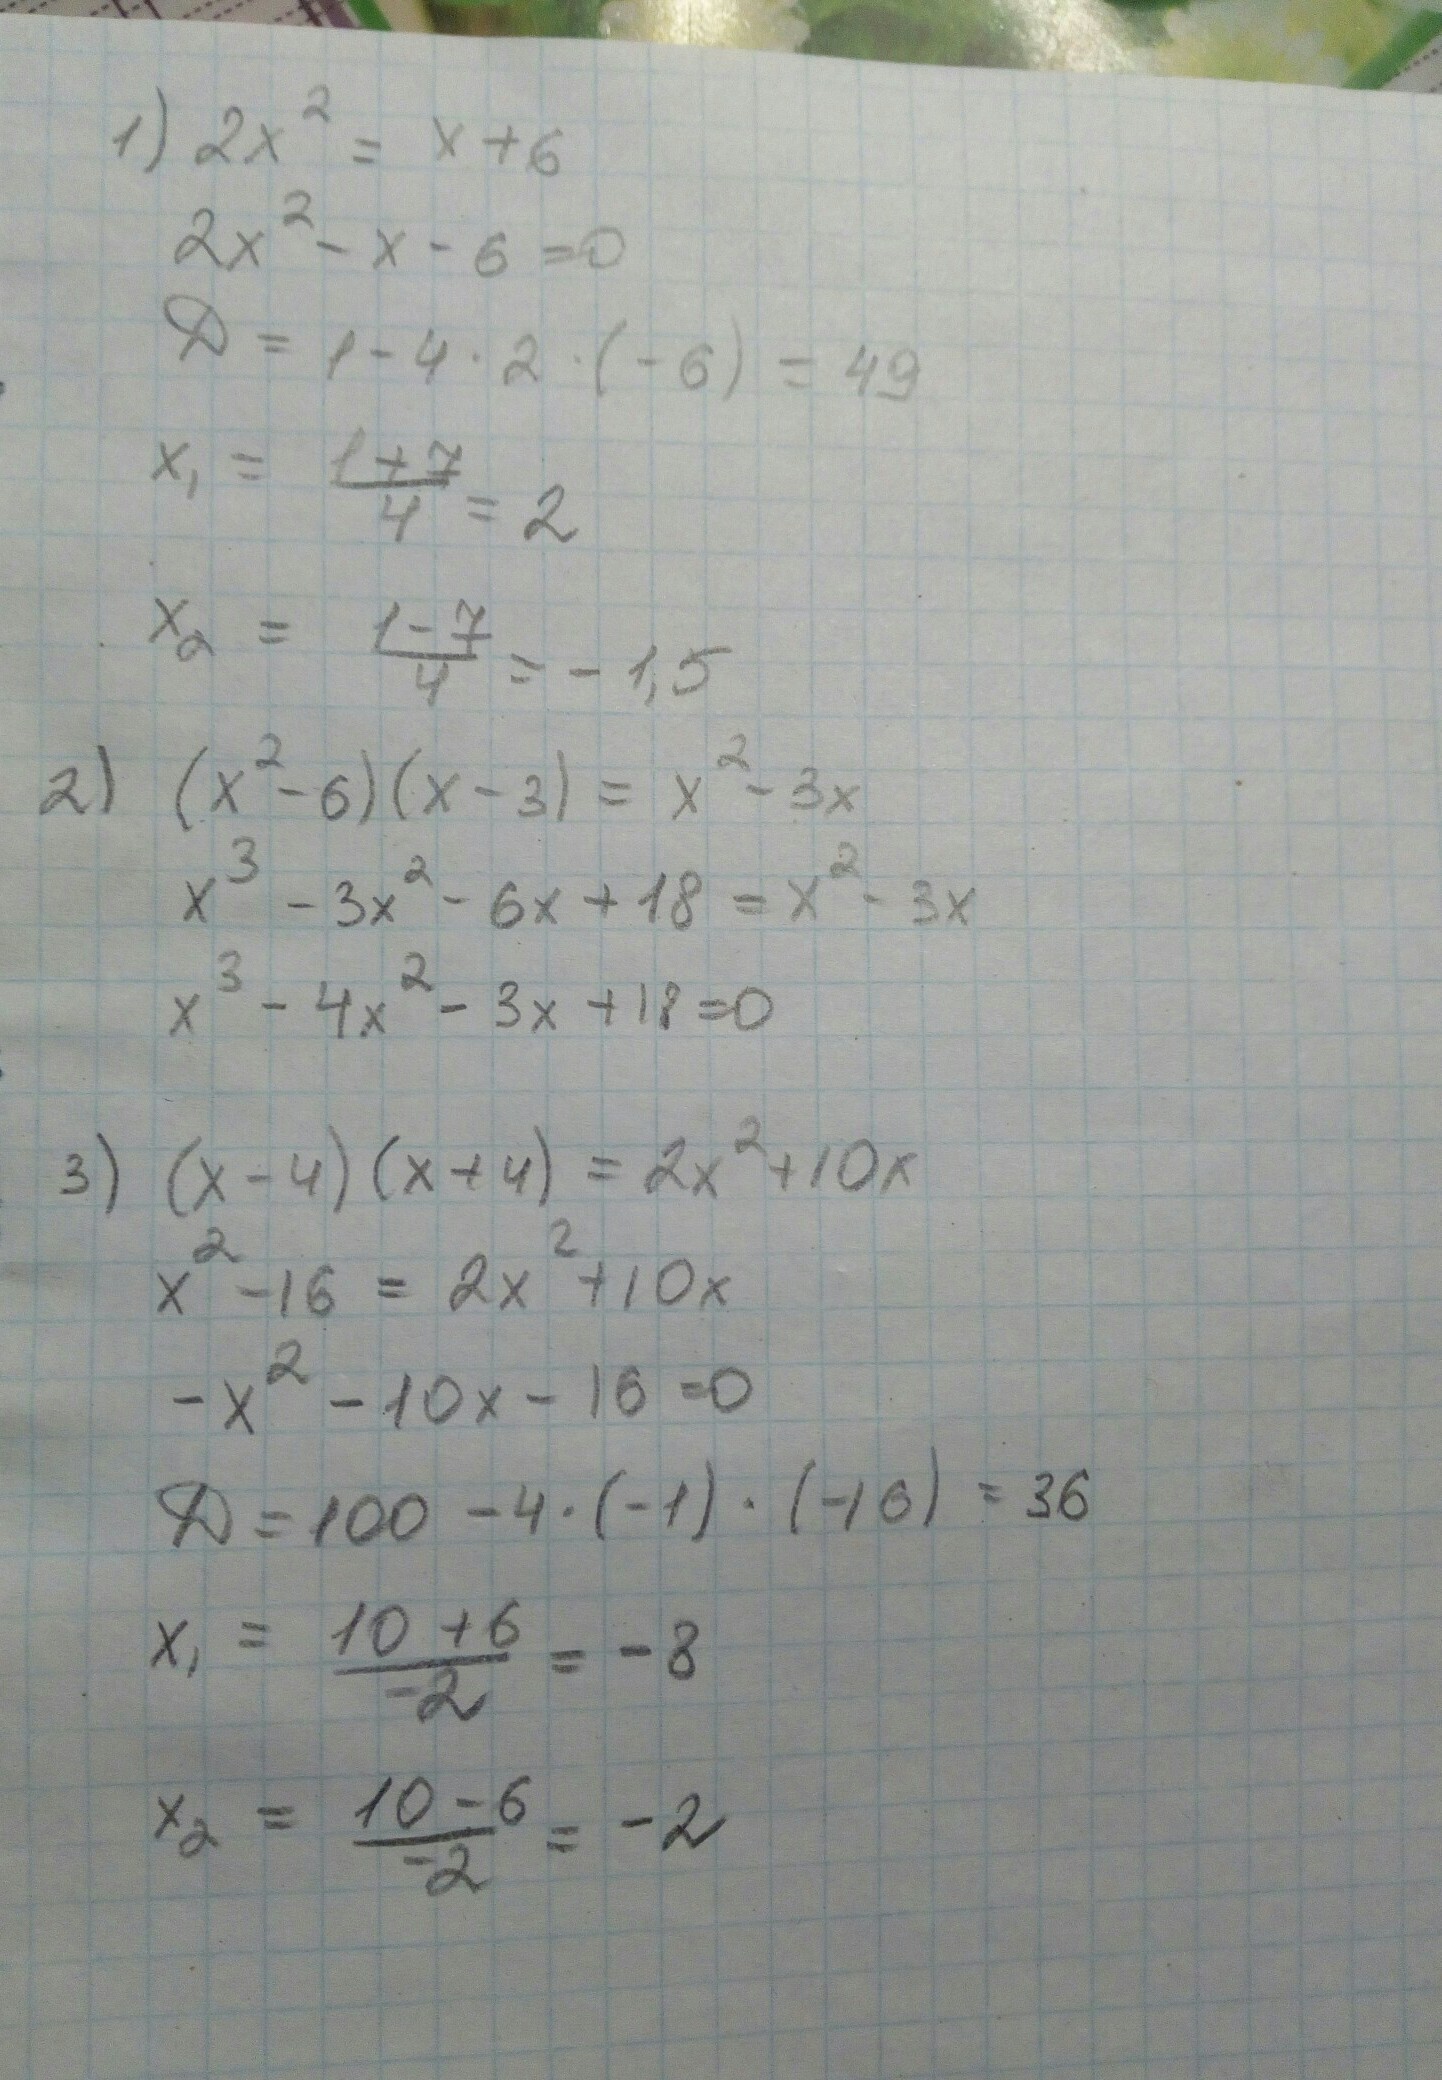 1) 2x² = x + 6
2x² - x - 6 = 0
D = 1 - 4 · 2 · (-6) = 49
x₁ = (1+7)/4 = 2
x₂ = (1-7)/4 = -1,5
2) (x² - 6)(x - 3) = x² - 3x
x³ - 3x² - 6x + 18 = x² - 3x
x³ - 4x² - 3x + 18 = 0
3) (x - 4)(x + 4) = 2x² + 10x
x² - 16 = 2x² + 10x
-x² - 10x - 16 = 0
D = 100 - 4 · (-1) · (-16) = 36
x₁ = (10 + 6)/-2 = -8
x₂ = (10 - 6)/-2 = -2